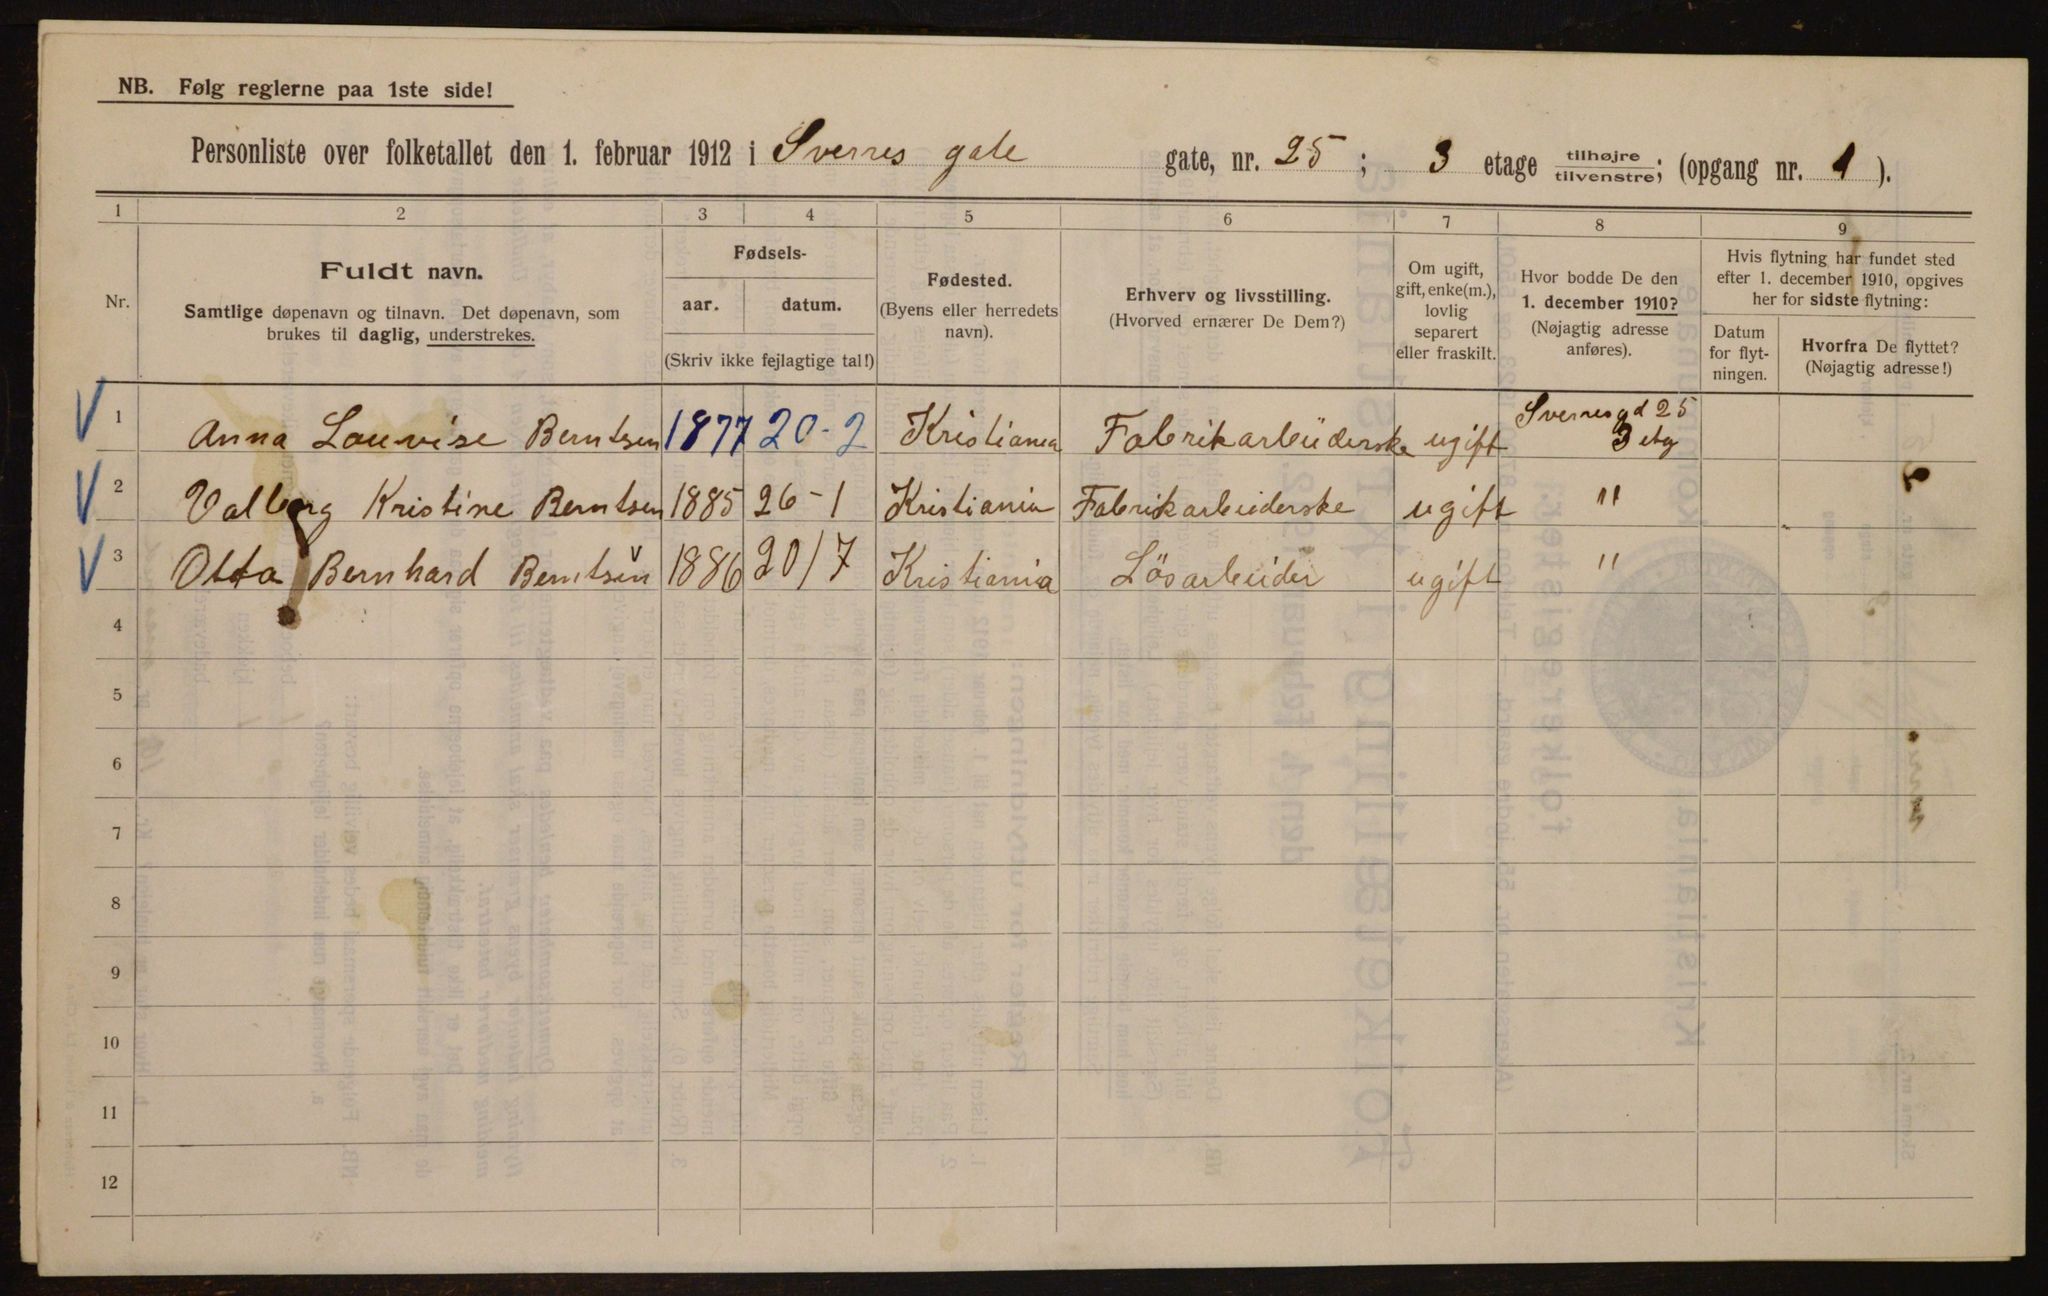 NB. Følg reglerne paa 1ste side!
Personliste over folketallet den 1. februar 1912 i Sverres gate gate, nr. 25 ; 3 etage tilhøjre tilvenstre; (opgang nr. 1 ).
1 2 3 4 5 6 7 8 9
Nr.
Fuldt navn.
Samtlige døpenavn og tilnavn. Det døpenavn, som
brukes til daglig, understrekes.
Fødsels-
aar. datum.
(Skriv ikke fejlagtige tal!)
Fødested.
(Byens eller herredets
navn).
Erhverv og livsstilling.
(Hvorved ernærer De Dem?)
Om ugift,
gift, enke(m.),
lovlig
separert
eller fraskilt.
Hvor bodde De den
1. december 1910?
(Nøjagtig adresse
anføres).
Hvis flytning har fundet sted
efter 1. december 1910, opgives
her for sidste flytning:
Datum
for flyt-
ningen.
Hvorfra De flyttet?
(Nøjagtig adresse!)
1 Anna Louvise Berntsen 1877 20-2 Kristiania Fabrikarbeiderske ugift Sverresgd 25
3 etg
2 Valborg Kristine Berntsen 1885 26-1 Kristiania Fabrikarbeiderske ugift "
3 Otto Bernhard Berntsen 1886 20/7 Kristiania Løsarbeider ugift "
4
5
6
7
8
9
10
11
12